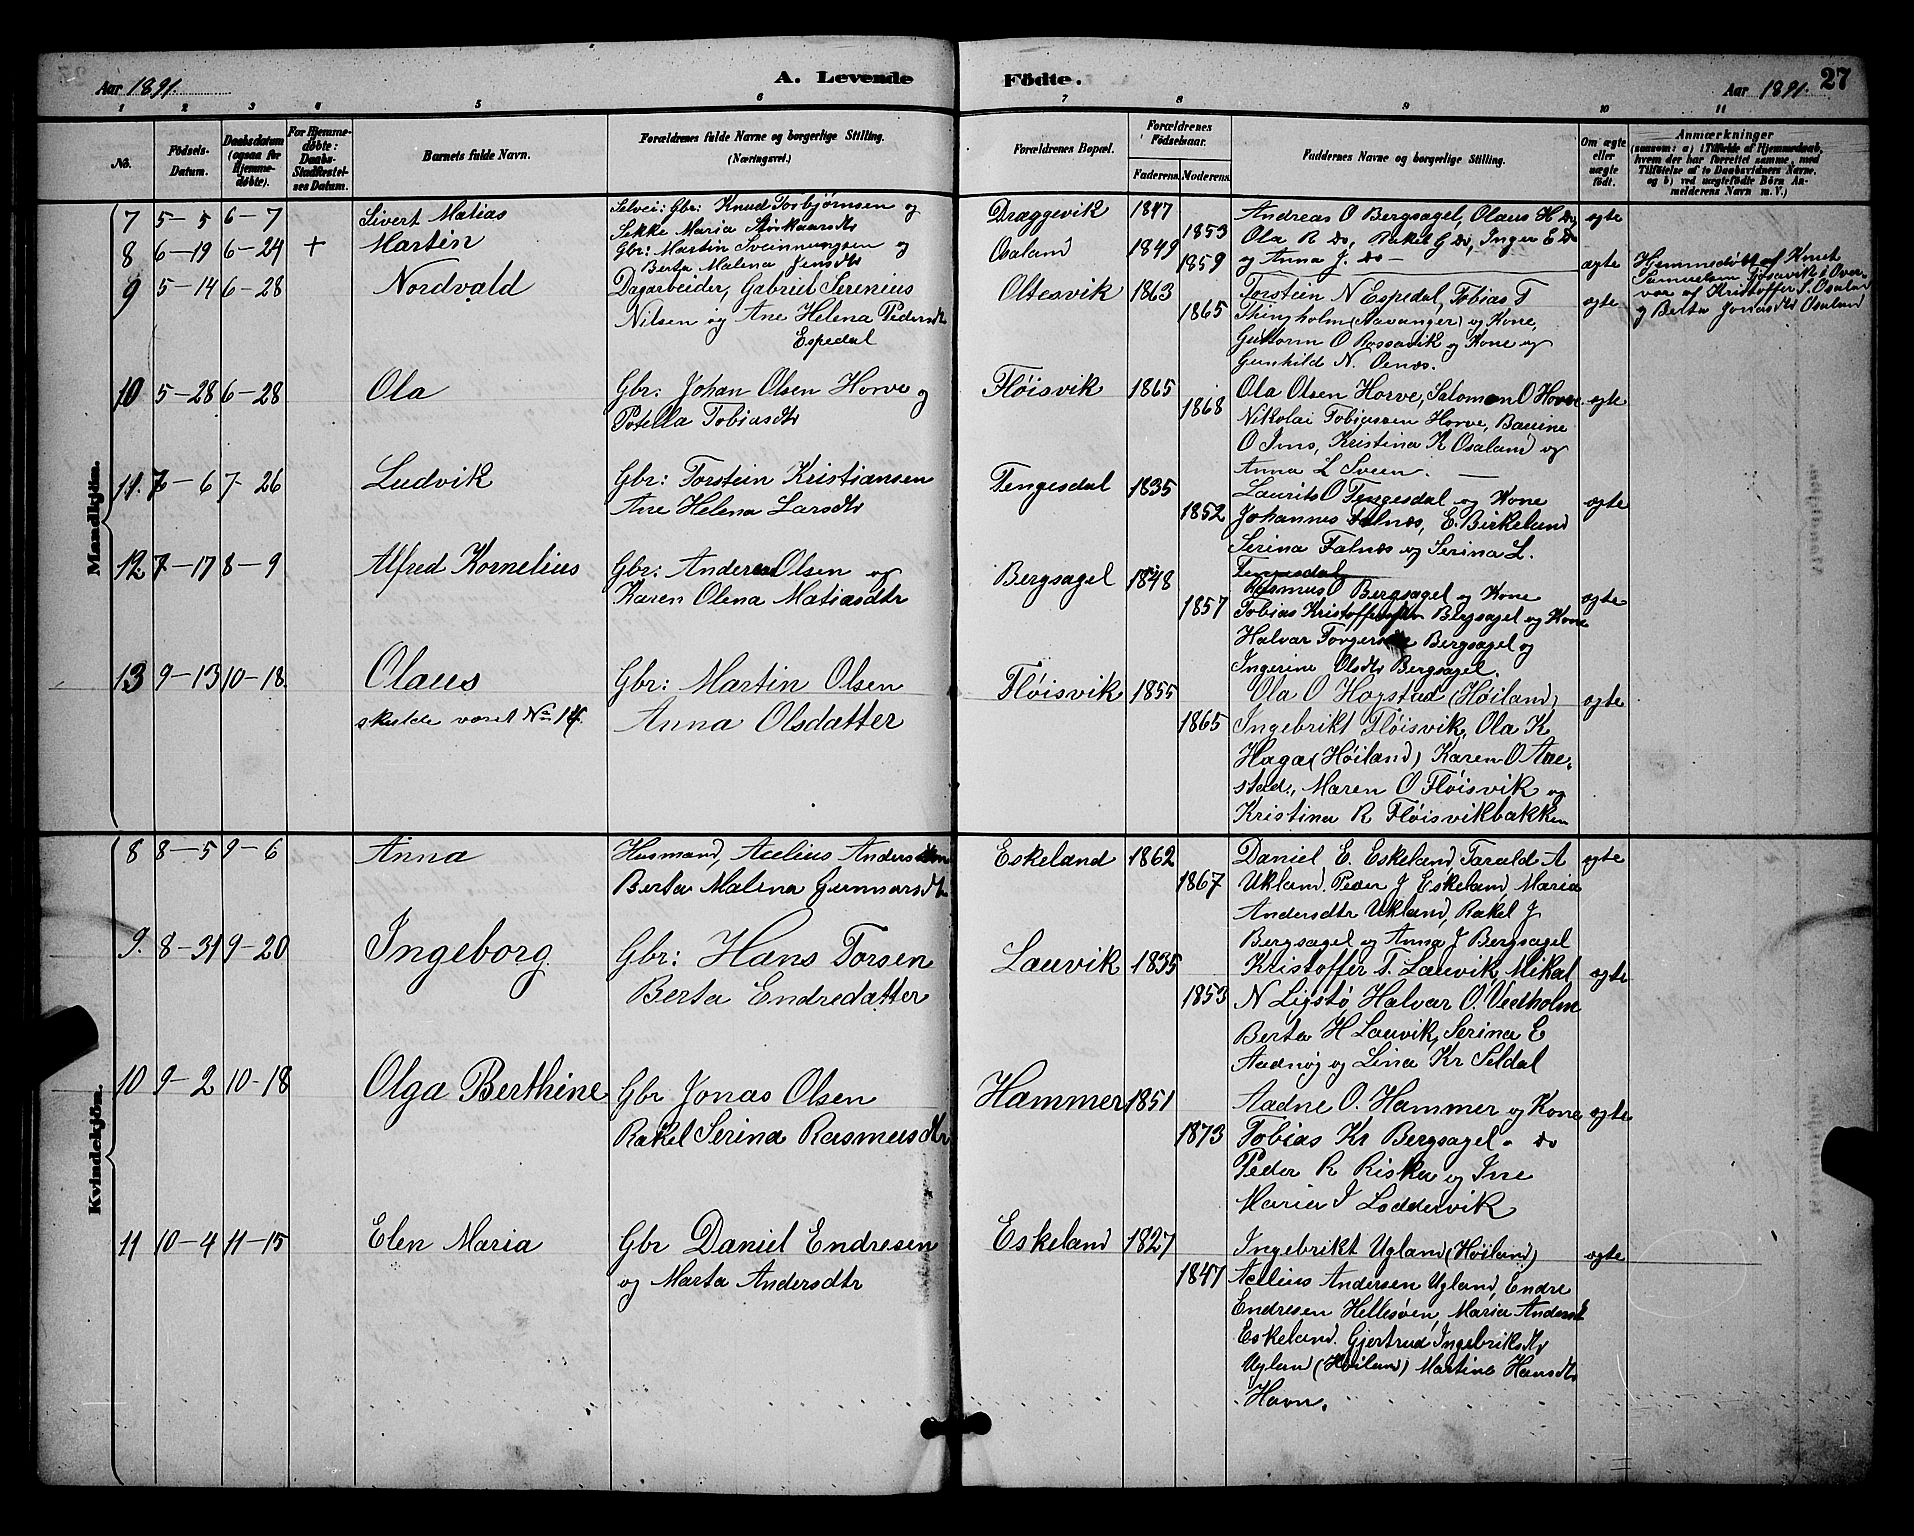 Aar 1891.
A. Levende
Födte.
Aar 1891.
27
1 2 3 4 5 6 7 8 9 10 11
No.
Födsels-Datum.
Daabsdatum (ogsaa for Hjemme-døbte).
For Hjemme-døbte: Daabs-Stadfæstel-ses Datum.
Barnets fulde Navn.
Forældrenes fulde Navne og borgerlige Stilling. (Næringsvei.)
Forældrenes Bopæl.
Forældrenes Födselsaar.
Faderens. Moderens.
Faddernes Navne og borgerlige Stilling.
Om ægte eller uægte født.
Anmærkninger
(saasom: a) i Tilfælde af Hjemmedaab, hvem der har forrettet samme, med Tilföielse af to Daabsvidners Navne, og b) ved uægtefødte Börn An-melderens Navn m. V.)
Mandkjön.
7 5-5 6-7 Sivert Matias
Selvei: Gbr: Knud Torbjørnsen og
Sekke Maria
Dræggevik 1847 1853
Andreas O Bergsagel, Olaus H Do
Ola R Do, Rakel G Do, Inger E Do
og Anna J. do —
ægte
8 6-19 6-24 + Martin
Gbr: Martin Sveinnungsen og
Berta Malena Jensdtr
Osaland 1849 1859
ægte
Hjemmedøbt af Knut
Samuelsen Gjøsavik i Over-
vær af Kristoffer S. Osaland
og Berta Jonasdtr Osaland
9 5-14 6-28 Nordvald
Dagarbeider, Gabriel Serenius
Nilsen og Ane Helena Pedersdtr
Espedal
Oltesvik 1863 1865
Torstein N Espedal, Tobias T
Thingholm (Stavanger) og Kone,
Guttorm O Rossavik og Kone og
Gunhild N. Oenæs.
ægte
10 5-28 6-28 Ola
Gbr: Johan Olsen Horve og
Potella Tobiasdtr
Fløisvik 1865 1868
Ola Olsen Horve, Salomon O Horve
Nikolai Tobiassen Horve,
O Ims, Kristina K Osaland og
Anna L Sveen. —
ægte
11. 7-6 7-26 Ludvik
Gbr: Torstein Kristiansen
Ane Helena Larsdtr
Tengesdal 1835 1852
Laurits O Tengesdal og Kone
Johannes Falnæs, E. Birkeland
Serina Falnæs og Serina L.
Tengesdal
ægte
12 7-17 8-9 Alfred Kornelius
Gbr: Anders Olsen og
Karen Olena Matiasdtr
Bergsagel 1848 1857
Rasmus O Bergsagel og Kone
Tobias Kristoffersen Bergsagel og Kone
Halvar Torgersen Bergsagel og
Ingerine Olsdtr Bergsagel.
ægte
13 9-13 10-18 Olaus
skulde været No 14.
Gbr: Martin Olsen
Anna Olsdatter
Fløisvik 1855 1865
Ola O Hogstad (Høiland)
Ingebrikt Fløisvik, Ola K
Haga (Høiland) Karen O Ane-
stad, Maren O Fløisvik og
Kristina R Fløisvikbakken
ægte
Kvindekjön.
8 8-5 9-6 Anna
Husmand, Aelius Andersen
Berta Malena Gunnarsdtr
Eskeland 1862 1867
Daniel E. Eskeland, Tarald A
Ukland. Peder J Eskeland, Maria
Andersdtr Ukland, Rakel J
Bergsagel og Anna J Bergsagel
ægte
9. 8-31 9-20 Ingeborg
Gbr: Hans Torsen
Berta Endredatter
Lauvik 1835 1853
Kristoffer T. Lauvik, Mikal
N Ligstø Halvar O. Vedholm
Berta H Lauvik, Serina E
Aadnøj og Lina Kr Seldal
ægte
10 9-2 10-18 Olga Berthine
Gbr Jonas Olsen
Rakel Serina Rasmusdtr
Hammer 1851 1873
Aadne O. Hammer og Kone
Tobias Kr Bergsagel " do
Peder R Riska og Ine
Maria I Loddervik
ægte
11 10-4 11-15 Elen Maria
Gbr Daniel Endresen
og Marta Andersdtr
Eskeland 1827 1847
Ingebrikt Ugland (Høiland)
Aelius Andersen Ugland, Endre
Endresen Hellesøen, Maria Andersd
Eskeland. Gjertrud Ingebriksdtr
Uglan (Høiland) Martine Hansdtr
Havn.
ægte